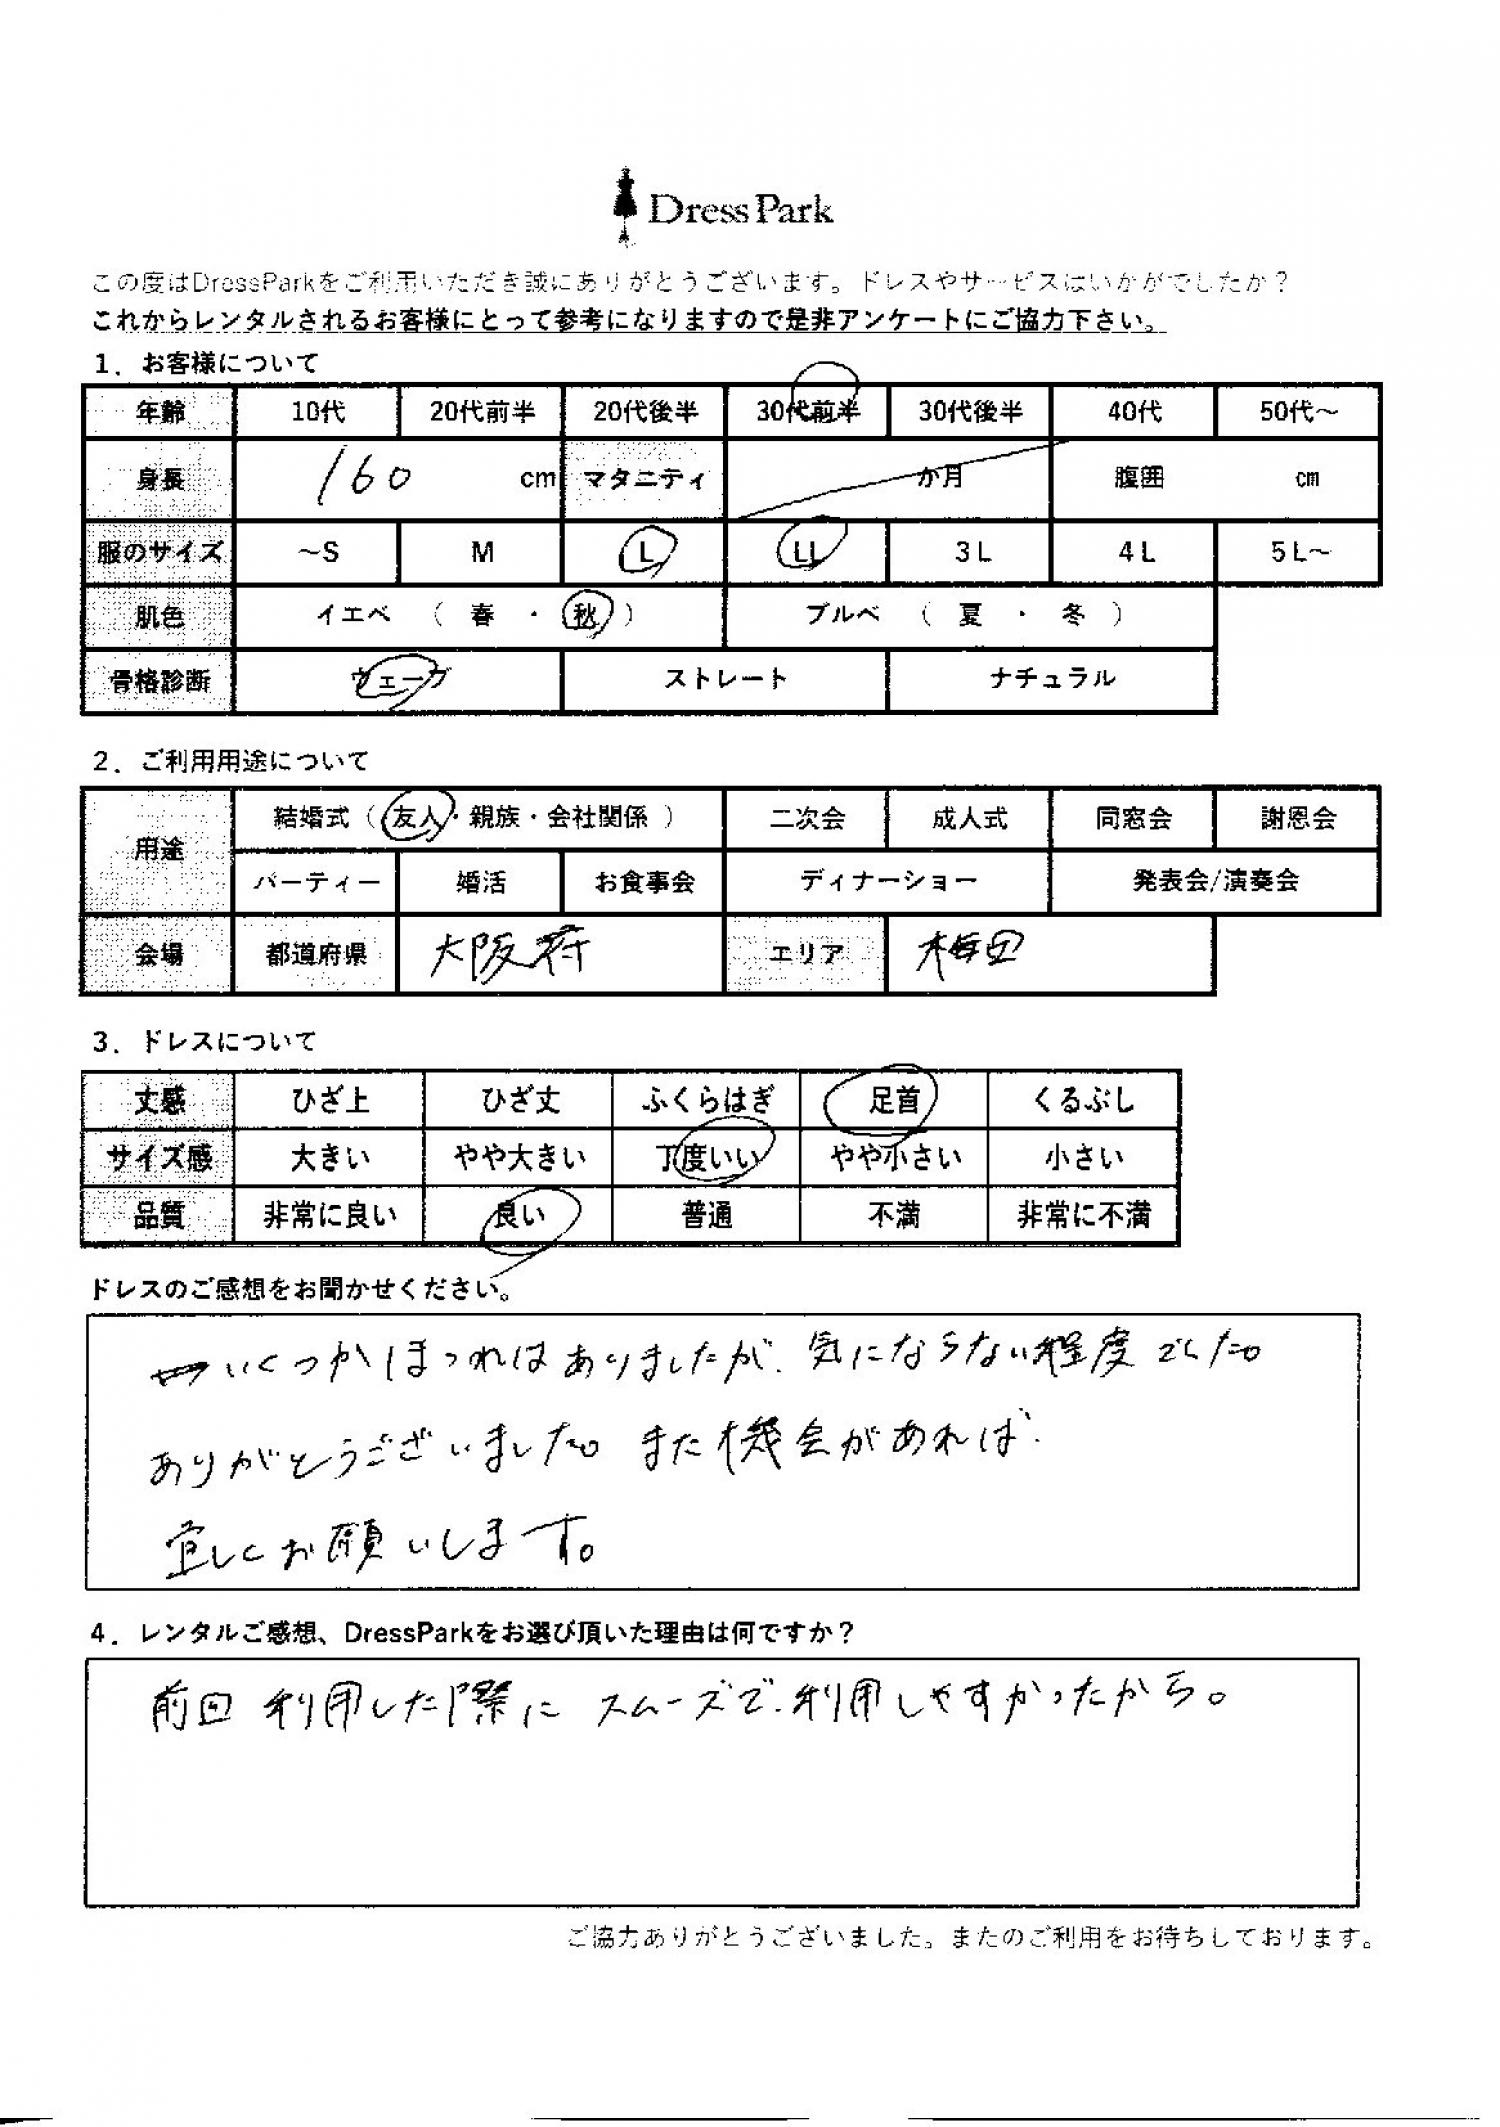 Dress Park
この度はDressParkをご利用いただき誠にありがとうございます。ドレスやサービスはいかがでしたか？
これからレンタルされるお客様にとって参考になりますので是非アンケートにご協力下さい。
1．お客様について
年齢 10代 20代前半 20代後半 30代前半 30代後半 40代 50代～
身長 160 cm マタニティ か月 腹囲 cm
服のサイズ ～S M L LL 3L 4L 5L～
肌色 イエベ （ 春 ・ 秋 ） ブルベ （ 夏 ・ 冬 ）
骨格診断 ウェーブ ストレート ナチュラル
2．ご利用用途について
用途 結婚式（ 友人・親族・会社関係 ） 二次会 成人式 同窓会 謝恩会
パーティー 婚活 お食事会 ディナーショー 発表会/演奏会
会場 都道府県 大阪府 エリア 梅田
3．ドレスについて
丈感 ひざ上 ひざ丈 ふくらはぎ 足首 くるぶし
サイズ感 大きい やや大きい 丁度いい やや小さい 小さい
品質 非常に良い 良い 普通 不満 非常に不満
ドレスのご感想をお聞かせください。
いくつかほつれはありましたが、気にならない程度でした。
ありがとうございました。また機会があれば、
宜しくお願いします。
4．レンタルご感想、DressParkをお選び頂いた理由は何ですか？
前回利用した際にスムーズで、利用しやすかったから。
ご協力ありがとうございました。またのご利用をお待ちしております。